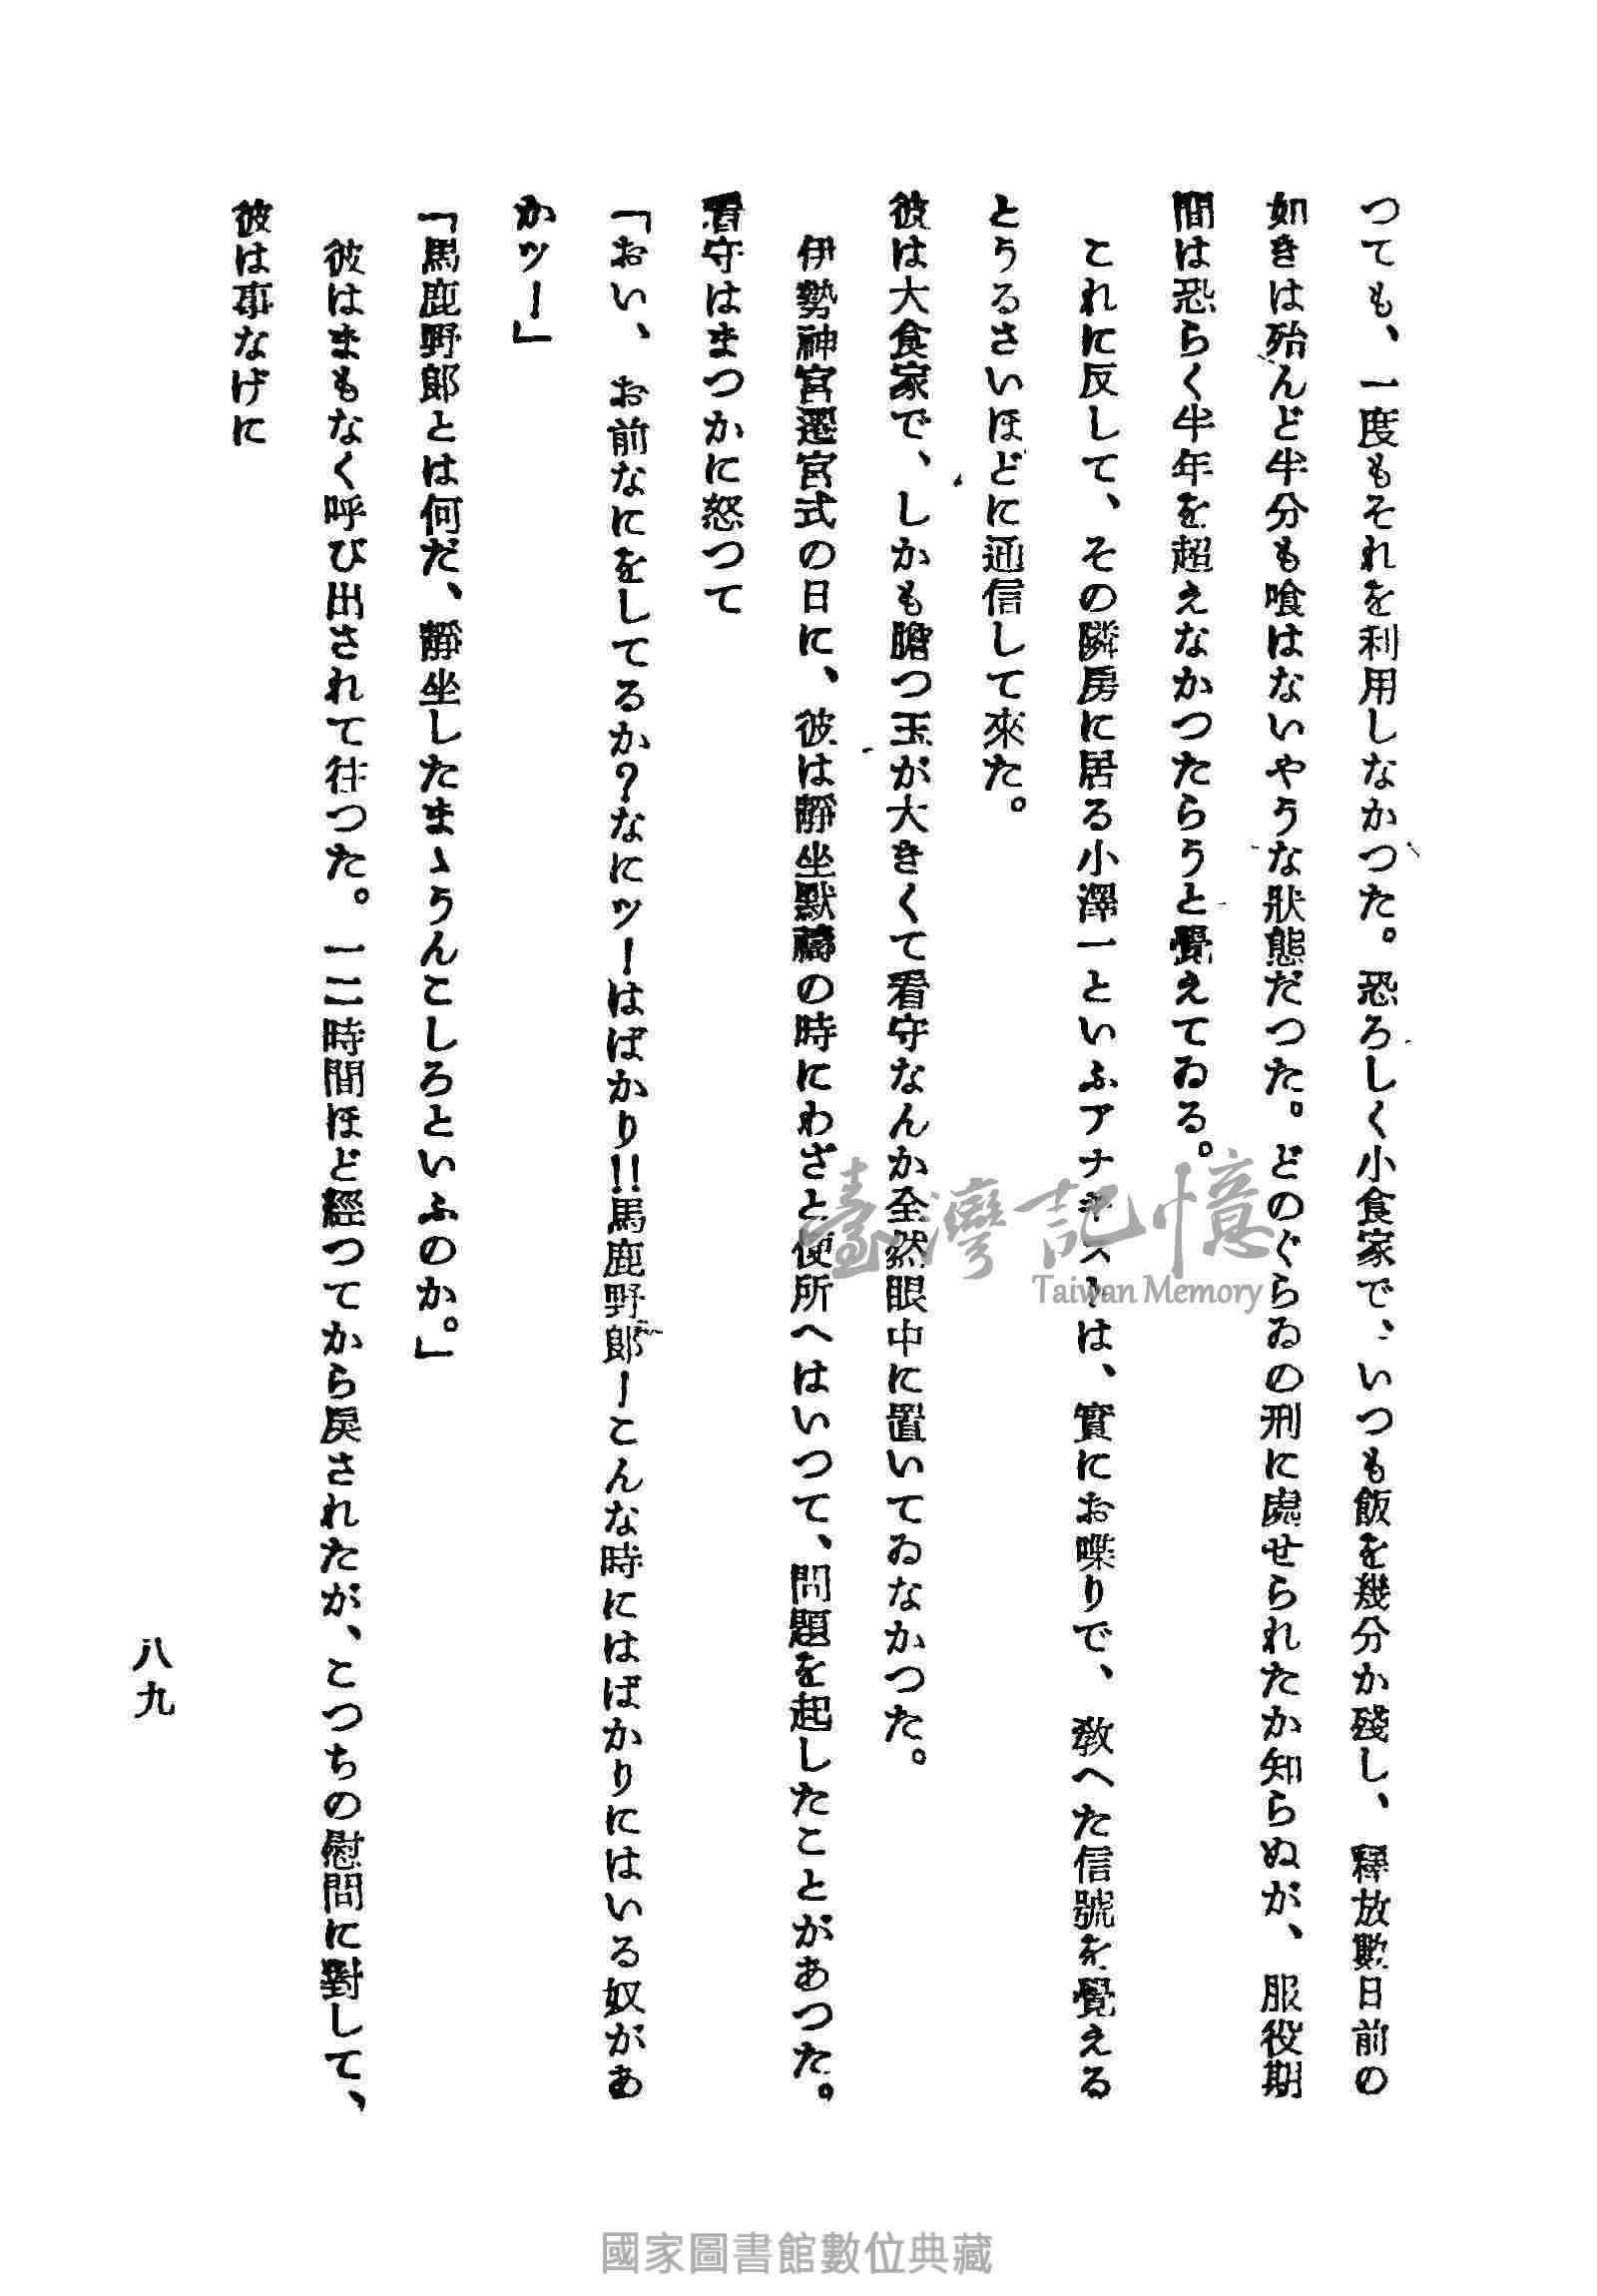 つても、一度もそれを利用しなかつた。恐ろしく小食家で、いつも飯を幾分か殘し、釋放數日前の
如きは殆んど半分も喰はないやうな狀態だつた。どのぐらゐの刑に處せられたか知らぬが、服役期
間は恐らく半年を超えなかつたらうと覺えてゐる。
これに反して、その隣房に居る小澤一といふアナキストは、實にお喋りで、敎へた信號を覺える
とうるさいほどに通信して來た。
彼は大食家で、しかも膽つ玉が大きくて看守なんか全然眼中に置いてゐなかつた。
伊勢神宮遷宮式の日に、彼は靜坐默禱の時にわざと便所へはいつて、問題を起したことがあつた。
看守はまつかに怒つて
「おい、お前なにをしてるか？なにッーはばかり!!馬鹿野郎ーこんな時にはばかりにはいる奴があ
かッー」
「馬鹿野郎とは何だ、靜坐したまゝうんこしろといふのか。」
彼はまもなく呼び出されて往つた。一二時間ほど經つてから戾されたが、こつちの慰問に對して、
彼は事なげに
八九
臺灣記憶
Taiwan Memory
國家圖書館數位典藏